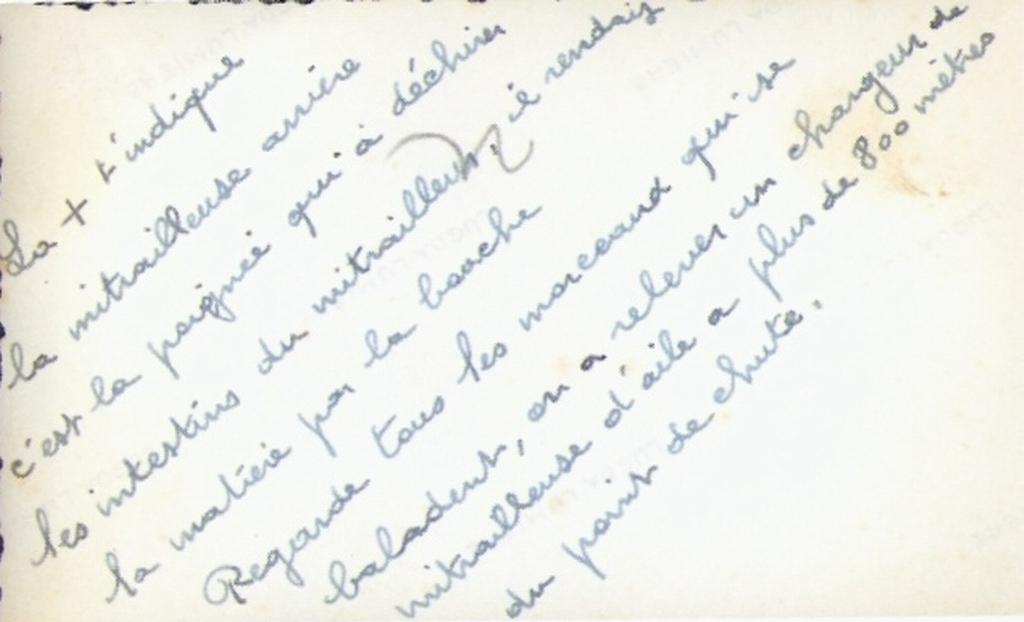 La + t'indique
la mitrailleuse arrière
c'est la poignée qui à déchirer
les intestins du mitrailleur, il rendais
la matière par la bouche
Regarde tous les morceaux qui se
baladent, on a relever un chargeur de
mitrailleuse d'aile a plus de 800 mètres
du point de chute.